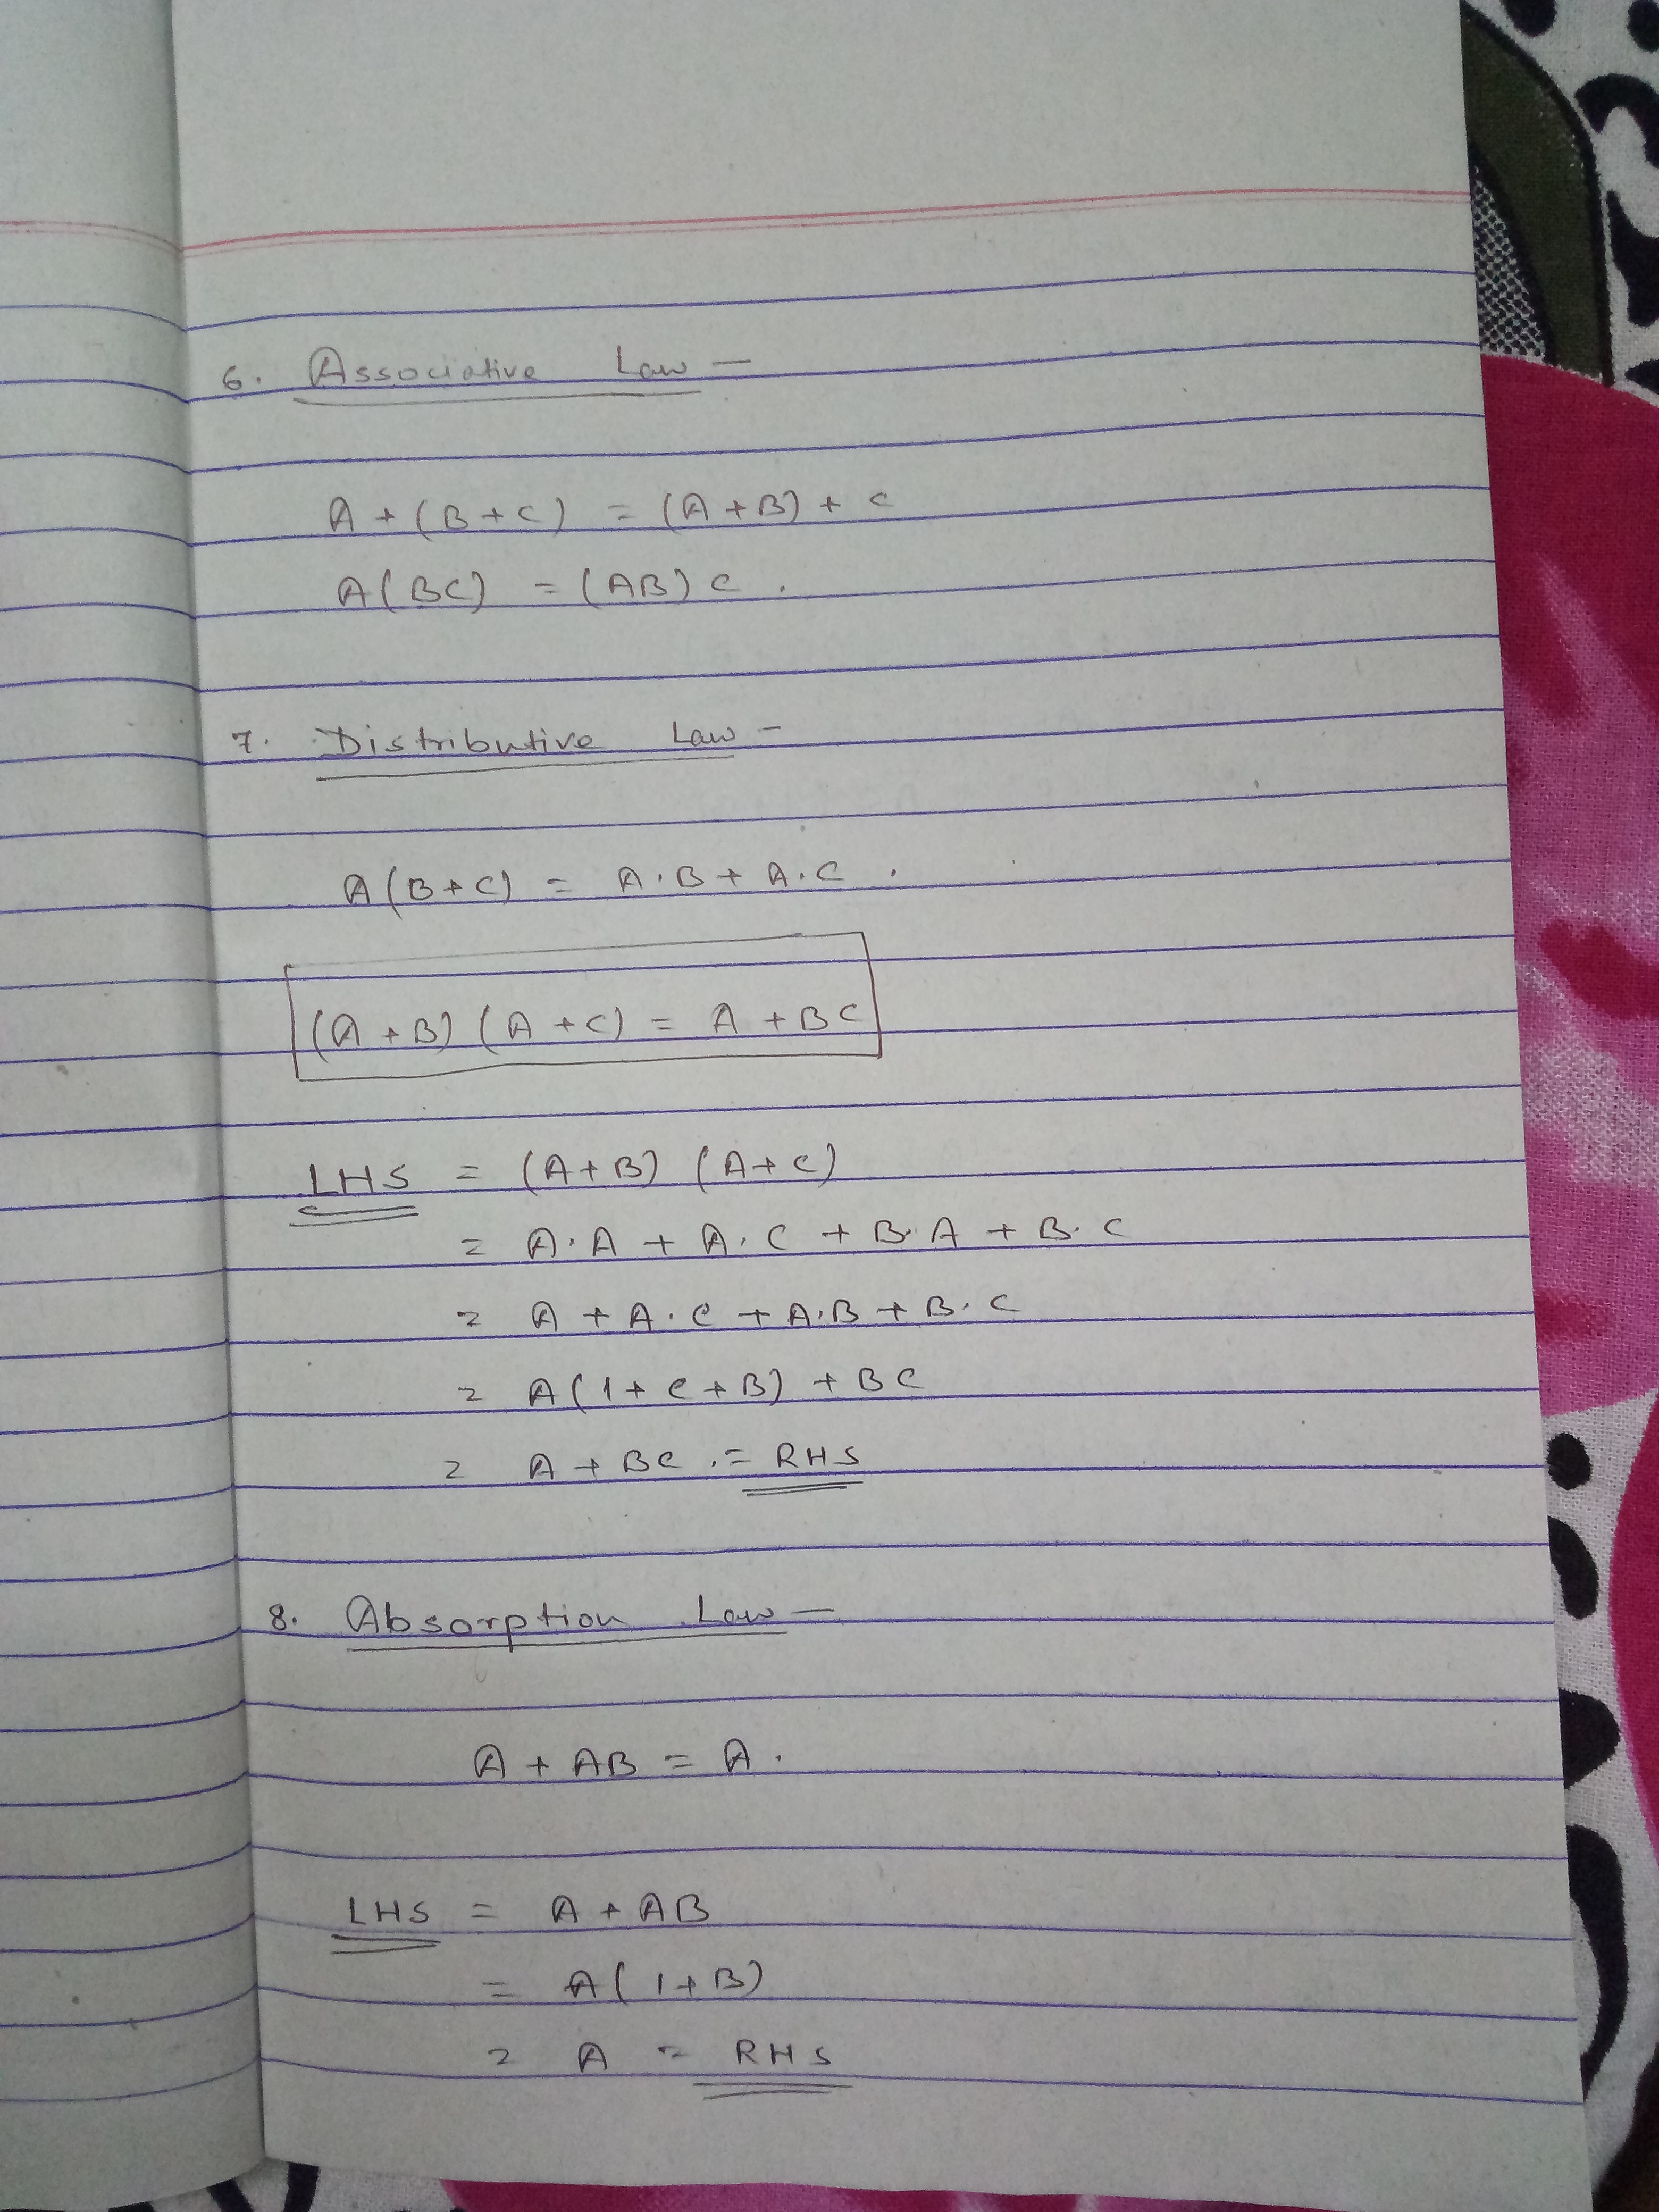 6. Associative Law –
A + (B + C) = (A + B) + C
A(BC) = (AB) C .
7. Distributive Law –
A(B + C) = A.B + A.C .
(A + B) (A + C) = A + BC
LHS = (A + B) (A + C)
= A.A + A.C + B.A + B.C
= A + A.C + A.B + B.C
= A(1 + C + B) + BC
= A + BC . = RHS
8. Absorption Law –
A + AB = A .
LHS = A + AB
= A(1 + B)
= A = RHS